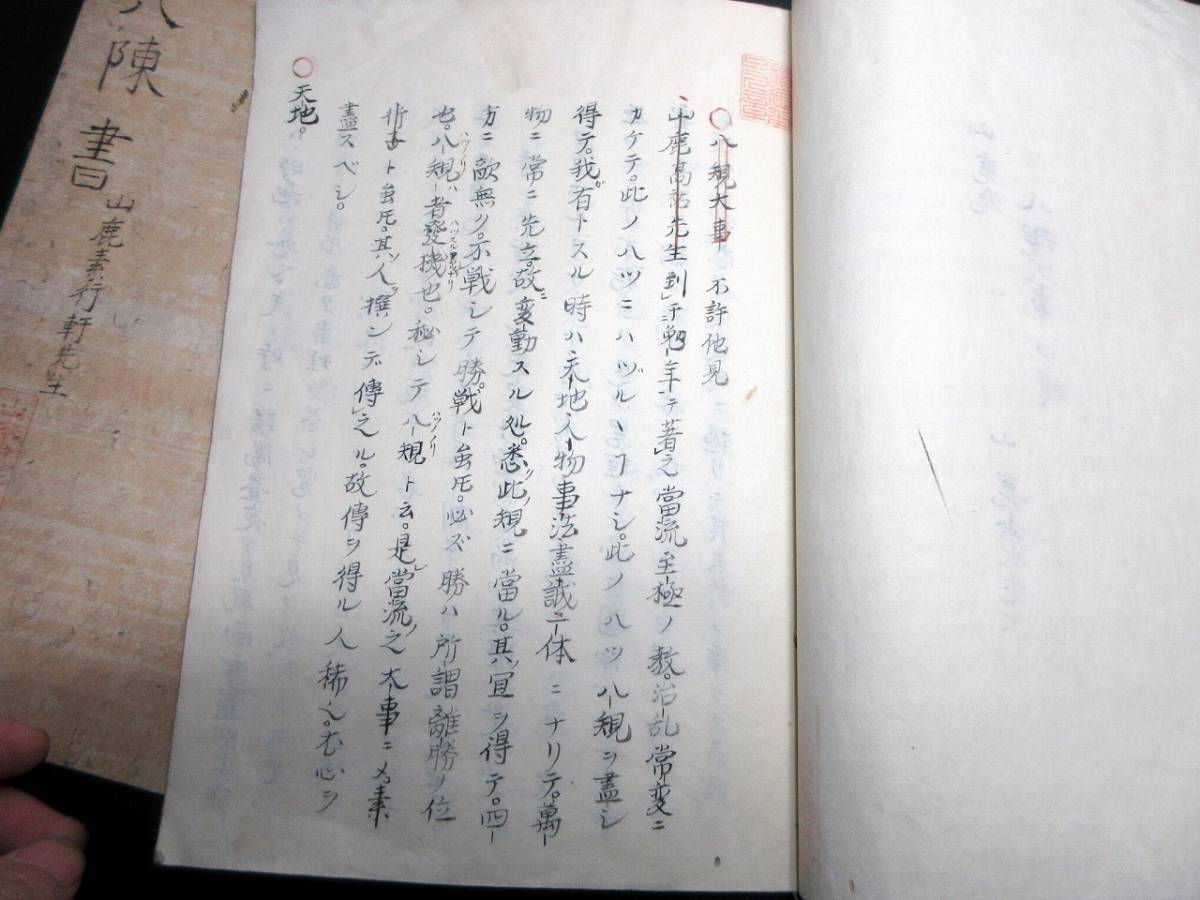 ○八規大事 不許他見
山鹿高祐先生到于勤年テ著之當流至極ノ教。治乱常変ニ
カケテ。此ノハツニハヅルヽヿナシ。此ノハツ八規ヲ盡シ
得テ。我有トスル時ハ、天地人物事法盡誠ニ一体ニナリテ。萬
物ニ常ニ先立。故ニ変動スル処。悉ク此ノ規ニ當ル。其ノ宜ヲ得テ。四
方ニ敵無ク。不戦シテ勝。戦ト虽𪜈。必ズ勝ハ所謂離勝ノ位
也。八規ハ者發機也。秘シテ八規ト云。是レ當流ノ之大事ニ〆。素
行子ト虽𪜈。其ノ人ヲ撰ンデ傳之ル。故傳ヲ得ル人稀也。心ヲ
盡スベシ。
○天地。
陳書
山鹿素行軒先生